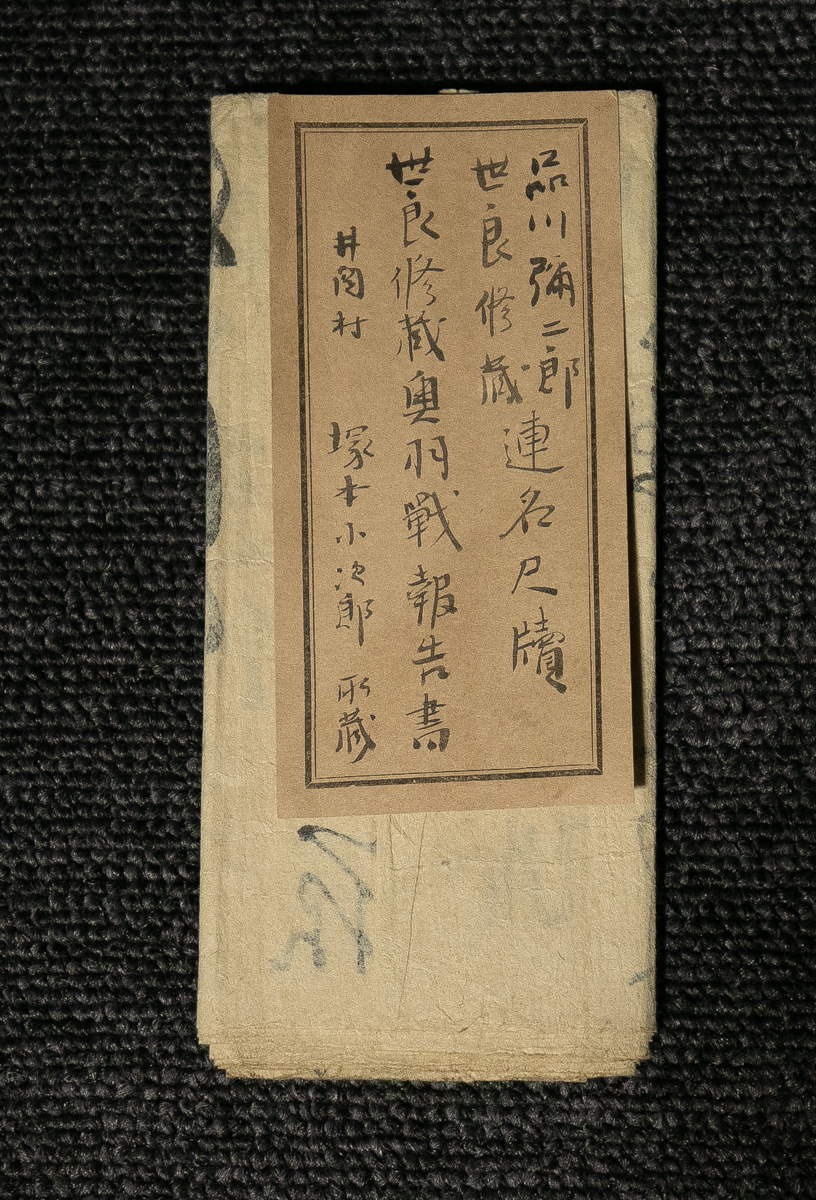 品川彌二郎
世良修蔵連名尺牘
世良修蔵奥羽戰報告書
井岡村 塚本小次郎 所藏